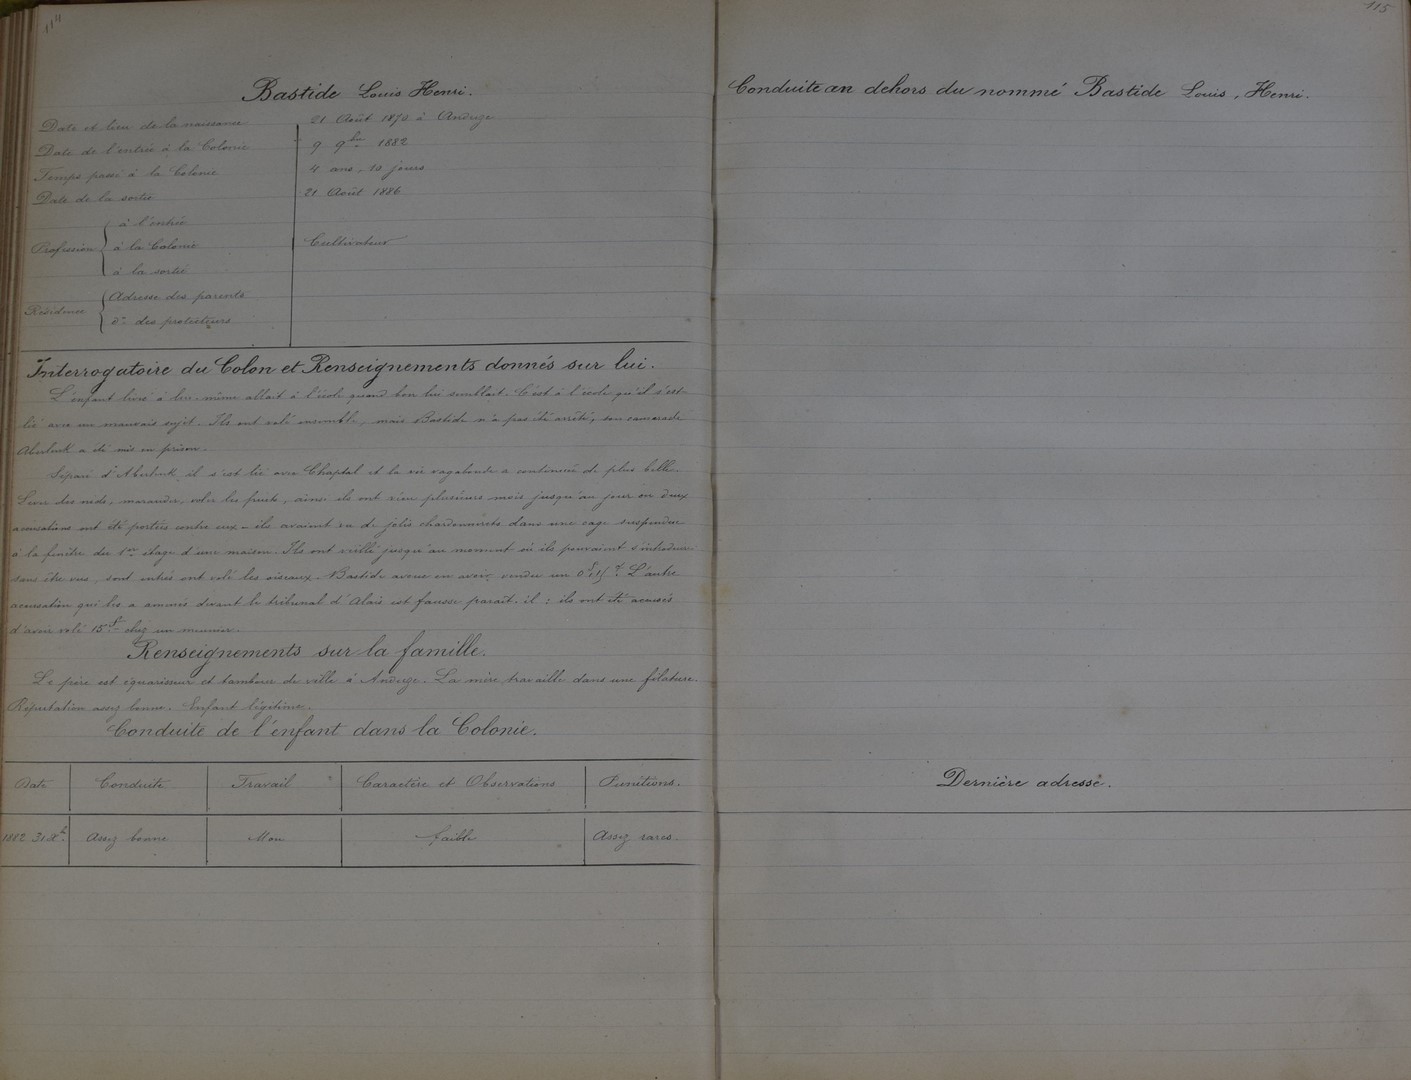 114
Bastide Louis Henri.
Date et lieu de la naissance 21 Août 1870 à Anduze
Date de l'entrée à la Colonie 9 9bre 1882
Temps passé à la Colonie 4 ans - 10 jours
Date de la sortie 21 Août 1886
Profession
à l'entrée
à la Colonie Cultivateur
à la sortie
Résidence
Adresse des parents
do des protecteurs
Interrogatoire du Colon et Renseignements donnés sur lui.
L'enfant livré à lui-même allait à l'école quand bon lui semblait. C'est à l'école qu'il s'est
lié avec un mauvais sujet. Ils ont volé ensemble, mais Bastide n'a pas été arrêté, son camarade
Aberlenk a été mis en prison.
Séparé d'Aberlenk il s'est lié avec Chaptal et la vie vagabonde a continué de plus belle.
des nids, marauder, voler les fruits, ainsi ils ont vécu plusieurs mois jusqu'au jour où deux
accusations ont été portées contre eux - ils avaient vu de jolis chardonnerets dans une cage suspendue
à la fenêtre du 1er étage d'une maison. Ils ont veillé jusqu'au moment où ils pouvaient s'introduire
sans être vus, sont entrés ont volé les oiseaux. Bastide avoue en avoir vendu un L'autre
accusation qui les a amenés devant le tribunal d'Alais est fausse paraît-il : ils ont été accusés
d'avoir volé 15f chez un meunier.
Renseignements sur la famille.
Le père est équarisseur et tambour de ville à Anduze. La mère travaille dans une filature.
Réputation assez bonne. Enfant légitime.
Conduite de l'enfant dans la Colonie.
Date Conduite Travail Caractère et Observations Punitions.
1882 31 Xbre Assez bonne Mou faible Assez rares.
115
Conduite au dehors du nommé Bastide Louis, Henri.
Dernière adresse.